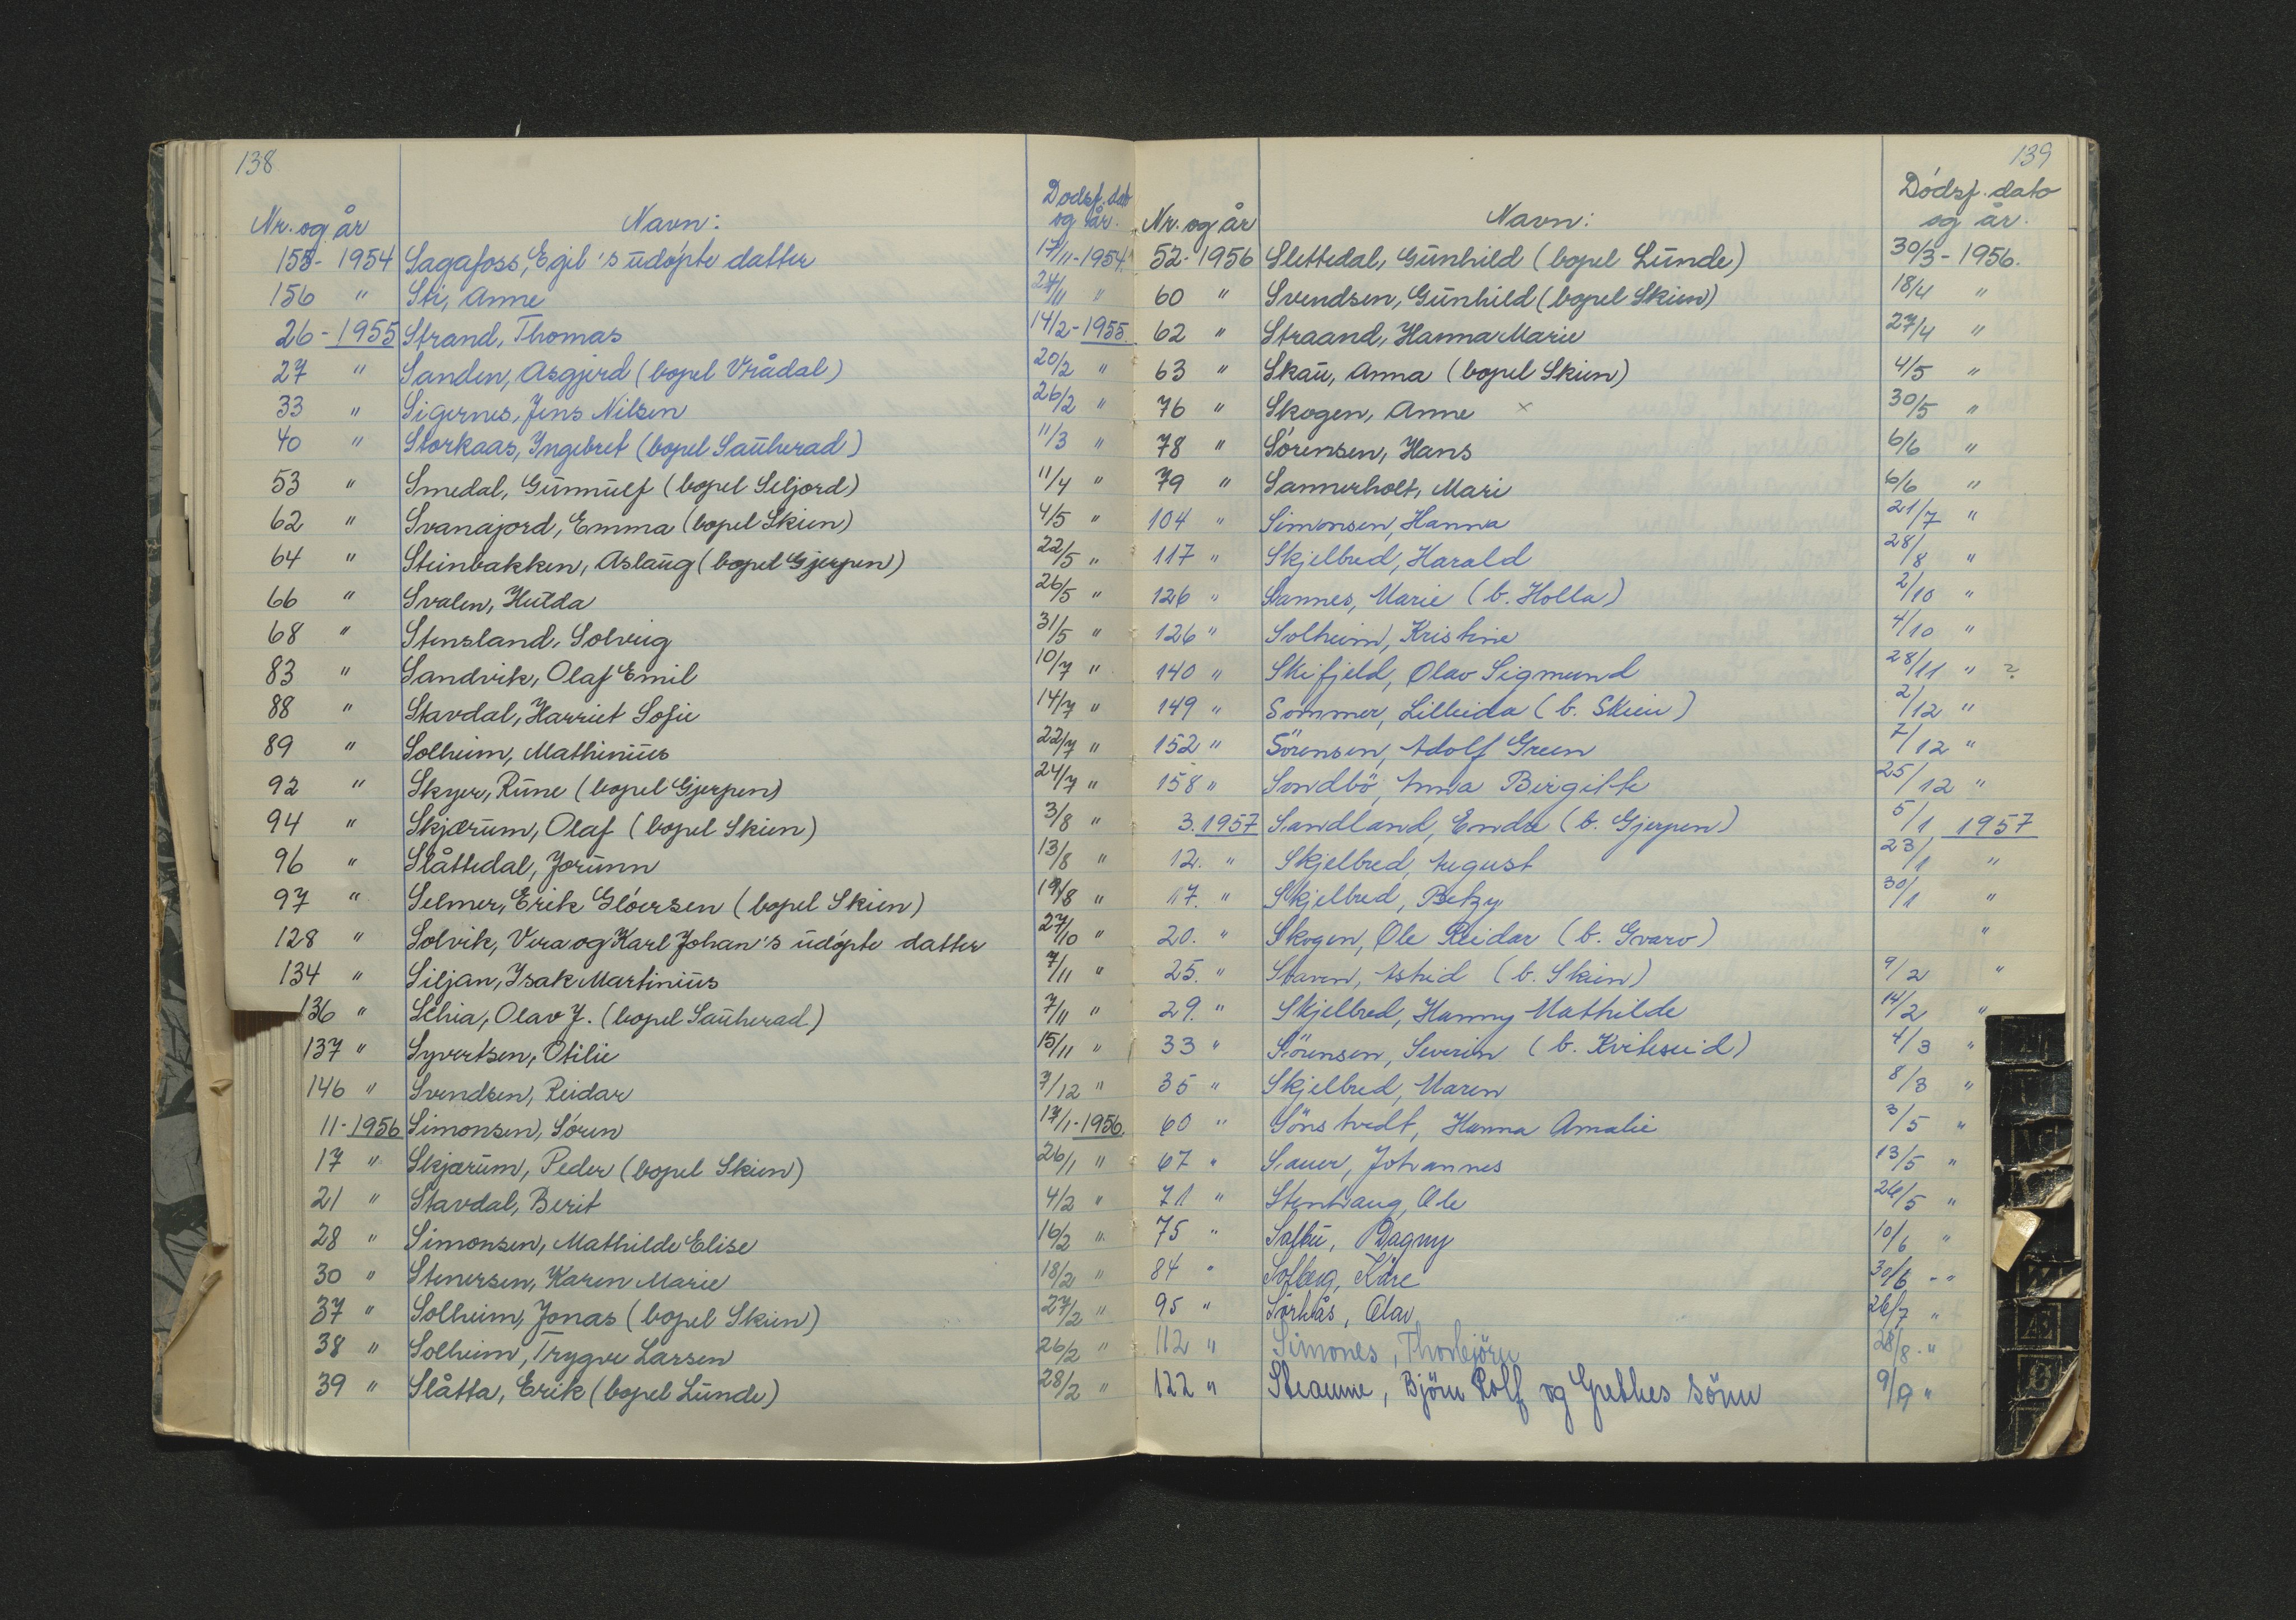 138
Nr. og år Navn: Dødsf. dato og år.
153- 1954 Sagafoss, Egil's udøpte datter 17/11-1954.
156 " Sti, Anne 24/11 "
26-1955 Strand, Thomas 14/2-1955.
27 " Sanden, Asgjerd (bopel Vrådal) 20/2 "
33 " Sigernes, Jens Nilsen 26/2 "
40 " Storkaas, Ingebret (bopel Sauherad) 11/3 "
53 " Smedal, Gunnulf (bopel Seljord) 11/4 "
62 " Svanajord, Emma (bopel Skien) 4/5 "
64 " Steinbakken, Aslaug (bopel Gjerpen) 22/5 "
66 " Svalen, Hulda 26/5 "
68 " Stensland, Solveig 31/5 "
83 " Sandvik, Olaf Emil 10/7 "
88 " Stavdal, Harriet Sofie 14/7 "
89 " Solheim, Mathinius 22/7 "
92 " Skyer, Rune (bopel Gjerpen) 24/7 "
94 " Skjærum, Olaf (bopel Skien) 3/8 "
96 " Slåttedal, Jorunn 13/8 "
97 " Selmer, Erik Glöersen (bopel Skien) 19/8 "
128 " Solvik, Vera og Karl Johan's udøpte datter 27/10 "
134 " Siljan, Isak Martinius 7/11 "
136 " Schia, Olav J. (bopel Sauherad) 7/11 "
137 " Syvertsen, Otilie 15/11 "
146 " Svendsen, Reidar 7/12 "
11-1956 Simonsen, Sören 17/1-1956.
17 " Skjærum, Peder (bopel Skien) 26/1 "
21 " Stavdal, Berit 4/2 "
28 " Simonsen, Mathilde Elise 16/2 "
30 " Stenersen, Karen Marie 18/2 "
37 " Solheim, Jonas (bopel Skien) 27/2 "
38 " Solheim, Trygve Larsen 26/2 "
39 " Slåtta, Erik (bopel Lunde) 28/2 "
139
Nr. og år Navn: Dødsf. dato og år.
52-1956 Slettedal, Gunhild (bopel Lunde) 30/3-1956.
60 " Svendsen, Gunhild (bopel Skien) 18/4 "
62 " Straand, Hanna Marie 27/4 "
63 " Skau, Anna (bopel Skien) 4/5 "
76 " Skogen, Anne x 30/5 "
78 " Sörensen, Hans 6/6 "
79 " Sannerholt, Mari 6/6 "
104 " Simonsen, Hanna 21/7 "
117 " Skjelbred, Harald 28/8 "
126 " Sannes, Marie (b. Holla) 2/10 "
126 " Solheim, Kristine 4/10 "
140 " Skifjeld, Olav Sigmund 28/11 " ?
149 " Sommer, Lilleida (b. Skien) 2/12 "
152 " Sörensen, Adolf Green 7/12 "
158 " Sondbö, Anna Birgitte 25/12 "
3. 1957 Sandland, Endre (b. Gjerpen) 5/1 1957
12. " Skjelbred, August 23/1 "
17. " Skjelbred, Betzy 30/1 "
20. " Skogen, Ole Reidar (b. Gvarv) "
25. " Staven, Astrid (b. Skien) 9/2 "
29. " Skjelbred, Hanny Mathilde 14/2 "
33 " Sörensen, Severin (b. Kviteseid) 4/3 "
35 " Skjelbred, Maren 8/3 "
60 " Sönstvedt, Hanna Amalie 3/5 "
67 " Sauer, Johannes 13/5 "
71 " Stenhaug, Ole 26/5 "
75 " Saltbu, Dagny 10/6 "
84 " Solberg, Kåre 30/6 "
95 " Sörbås, Olav 26/7 "
112 " Simones, Thorbjörn 28/8 "
122 " Straume, Björn Rolf og Grethes sönn 9/9 "
Æ
Ø